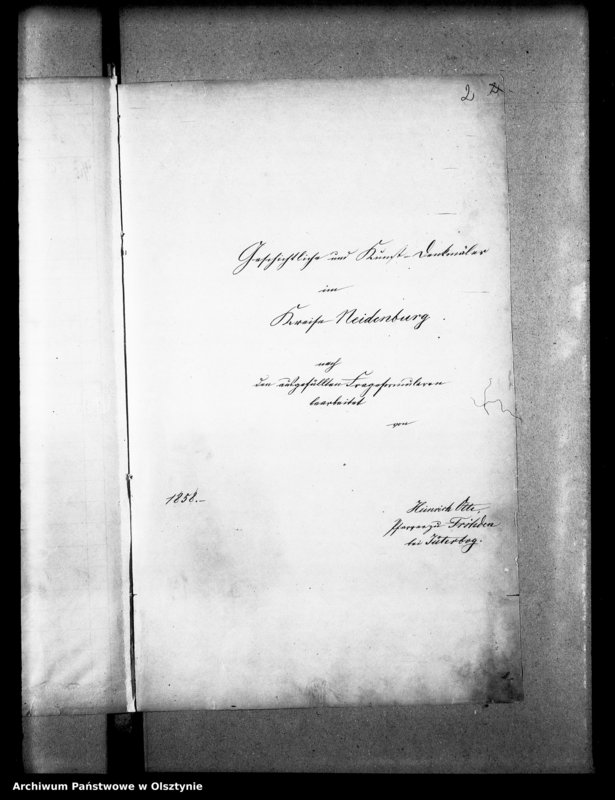 2
Geschichtliche und Kunst-Denkmäler
im
Kreise Neidenburg.
nach
den ausgefüllten Frageformularen
bearbeitet
von
1858.-
Heinrich Otte,
Pfarrer zu Fröhden
bei Jüterbog.
Archiwum Państwowe w Olsztynie